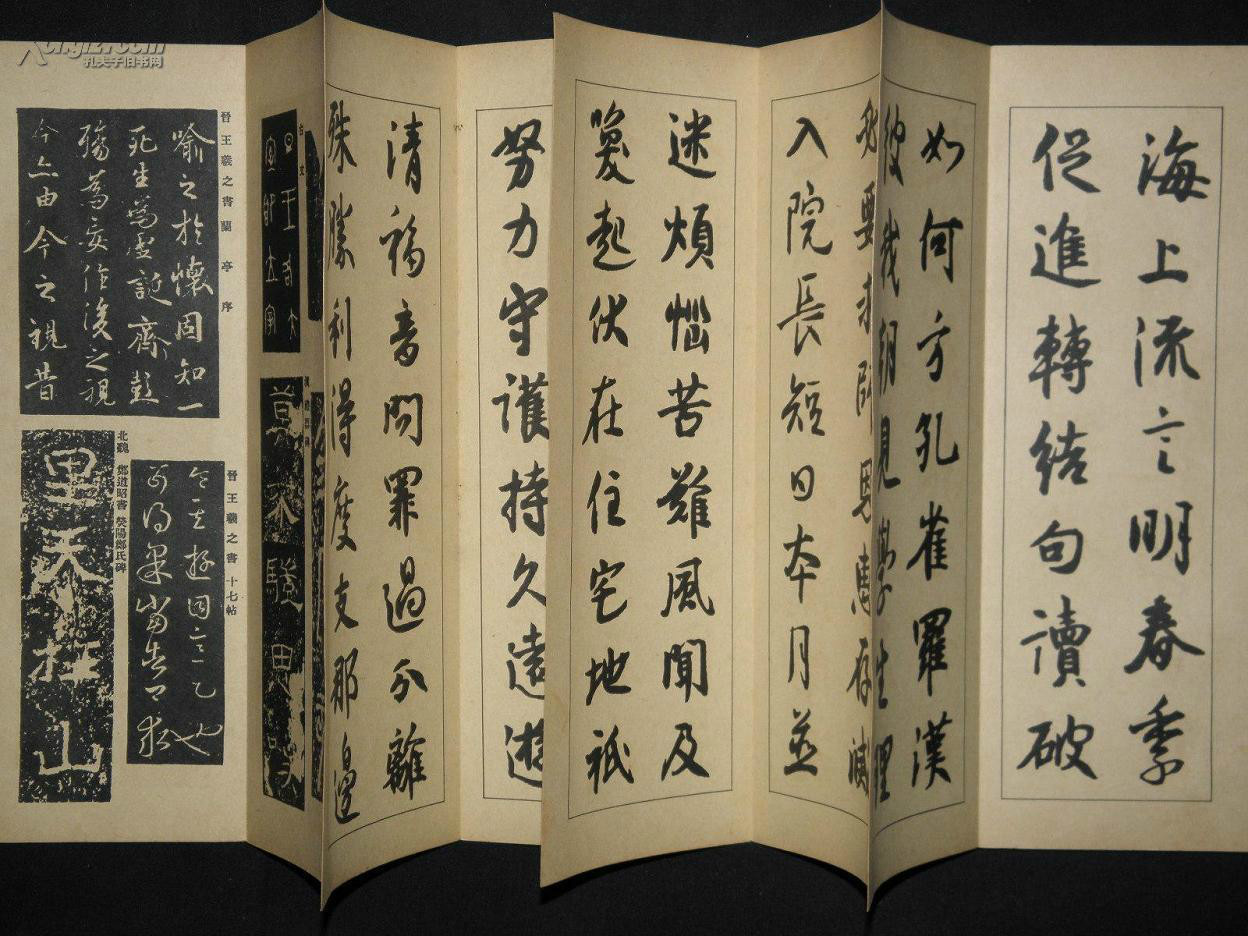 海上流言明春季
促進轉結句讀破
如何方孔雀羅漢
彼我朝見學生裡
我要求師恩惠存滅
入院長短日本月並
迷煩惱苦難風聞及
喚起伏在住宅地祇
努力守護持久遠遊
清福音問罪過分離
殊勝利得度支那邊
晉王羲之書蘭亭序
喻之於懷固知一
死生為虛誕齊彭
殤為妄作後之視
今亦由今之視昔
晉王羲之書十七帖
北魏 鄭道昭書 滎陽鄭氏碑
里天柱山
孔夫子旧书网